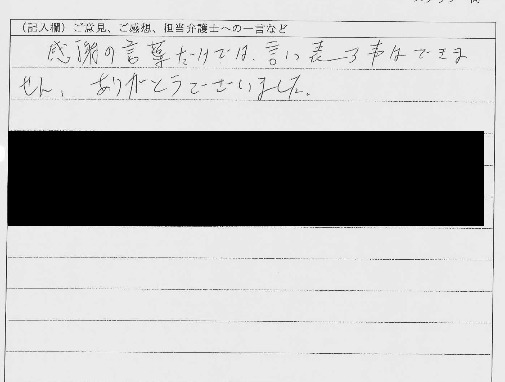 （記入欄）ご意見、ご感想、担当弁護士への一言など
感謝の言葉だけでは、言い表す事はできま
せん、ありがとうございました。